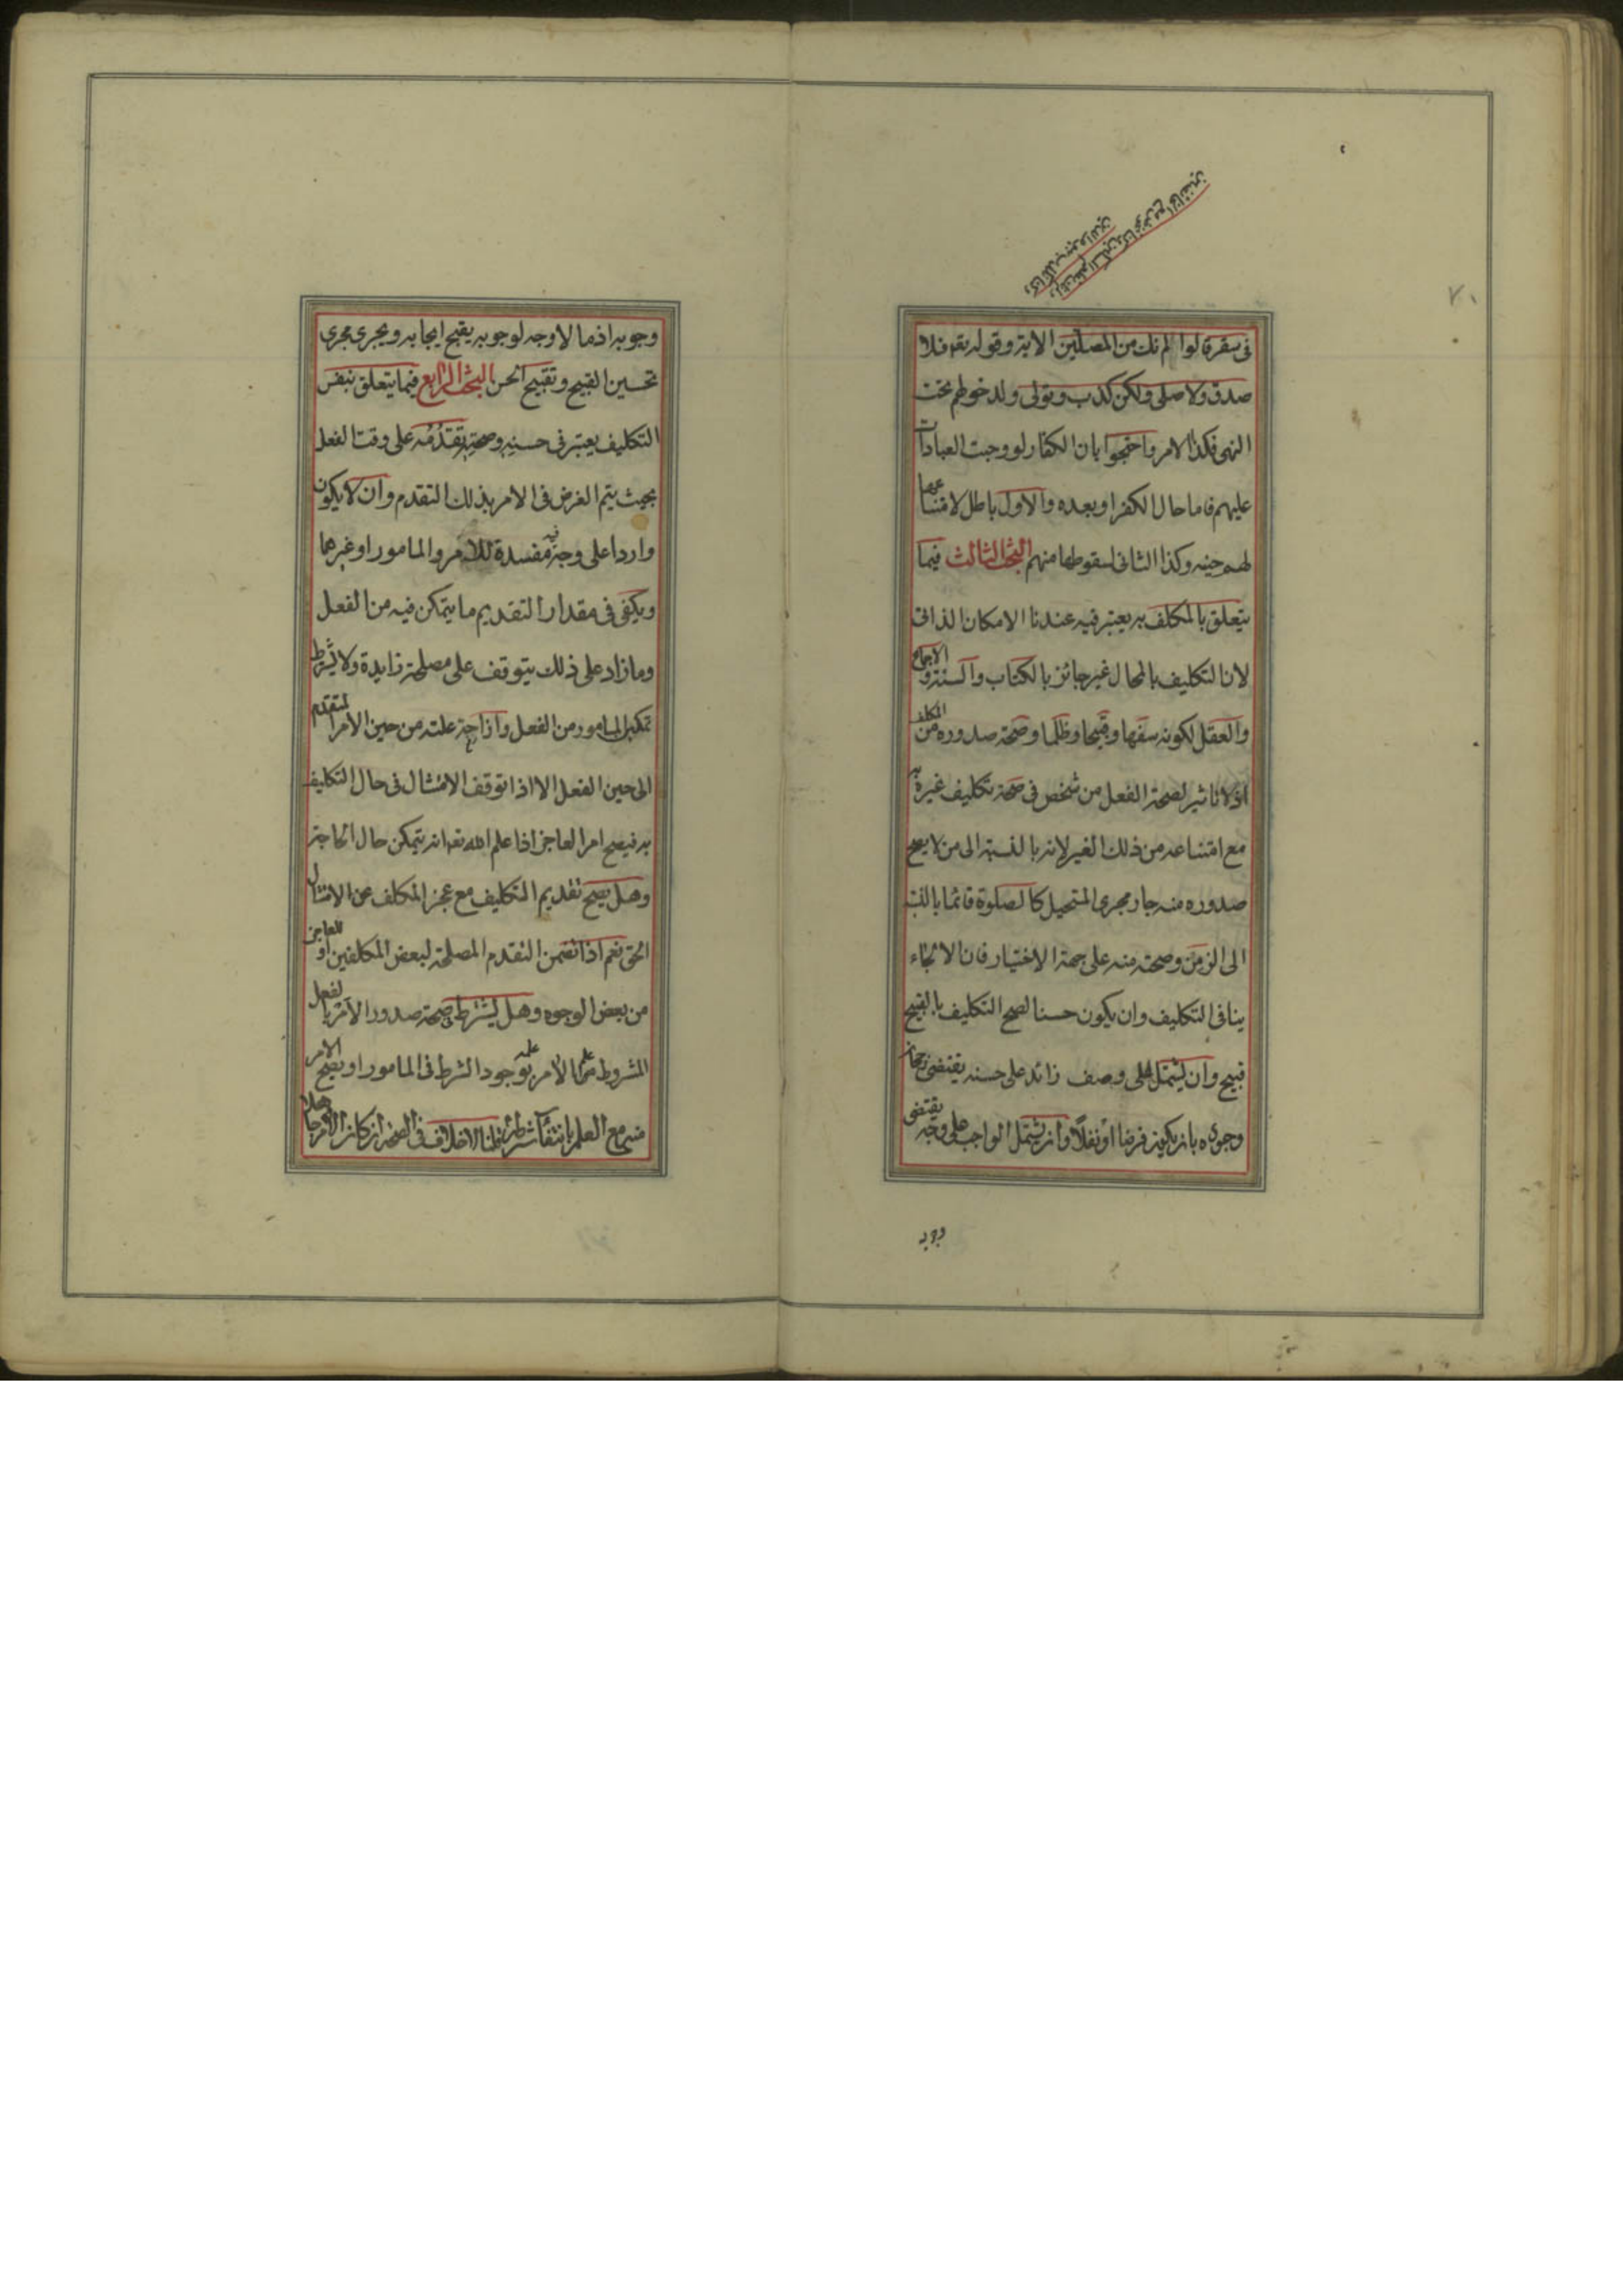 ولم نك نطعم المسكين وكنا نخوض مع الخائضين
وكنا نكذب بيوم الدين
فى سقر قالوا لم نك من المصلين الاية وقوله تعه فلا
صدق ولا صلى ولكن كذب وتولى ولدخولهم تحت
النهى فكذا الامر واحتجوا بان الكفار لو وجبت العبادات
عليهم فاما حال الكفر او بعده والاول باطل لامتناعها
لهم حينه وكذا الثانى لسقوطها منهم البحث الثالث فيما
يتعلق بالمكلف به يعتبر فيه عندنا الامكان الذاتى
لان التكليف بالمحال غير جائز بالكتاب والسنة والاجماع
والعقل لكونه سفها وقبيحا وظلما وصحة صدوره من المكلف
اذ لا تاثير لصحة الفعل من شخص فى صحة تكليف غيره به
مع امتناعه من ذلك الغير لانه بالنسبة الى من لا يصح
صدوره منه جار مجرى المستحيل كالصلوة قائما بالنسبة
الى الزمن وصحته منه على جهة الاختيار فان الالجاء
ينافى التكليف وان يكون حسنا لقبح التكليف بالقبيح
قبيح وان يشتمل على وصف زائد على حسنه يقتضى رجحان
وجوده بان يكون فرضا او نفلا وان يشتمل الواجب على وجه يقتضى
وجوبه
وجوبه اذ ما لا وجه لوجوبه يقبح ايجابه ويجرى مجرى
تحسين القبيح وتقبيح الحسن البحث الرابع فيما يتعلق بنفس
التكليف يعتبر فى حسنه وصحته تقدمه على وقت الفعل
بحيث يتم الغرض فى الامر بذلك التقدم وان لا يكون
واردا على وجه فيه مفسدة للامر والمامور او غيرها
ويكفى فى مقدار التقديم ما يتمكن فيه من الفعل
وما زاد على ذلك يتوقف على مصلحة زايدة ولا يشترط
تمكين المامور من الفعل وازاحة علته من حين الامر المتقدم
الى حين الفعل الا اذا توقف الامتثال فى حال التكليف
به فيصح امر العاجز اذا علم الله تعه انه يتمكن حال الحاجة
وهل يصح تقديم التكليف مع عجز المكلف عن الامتثال
الحق نعم اذا تضمن التقدم المصلحة لبعض المكلفين او للعاجز
من بعض الوجوه وهل يشترط صحة صدور الامر بالفعل
المشروط علم الامر بوجود الشرط فى المامور او يصح الامر
منه مع العلم بانتفاء شرطه قلنا لا خلاف فى الصحة ان كان الامر جاهلا